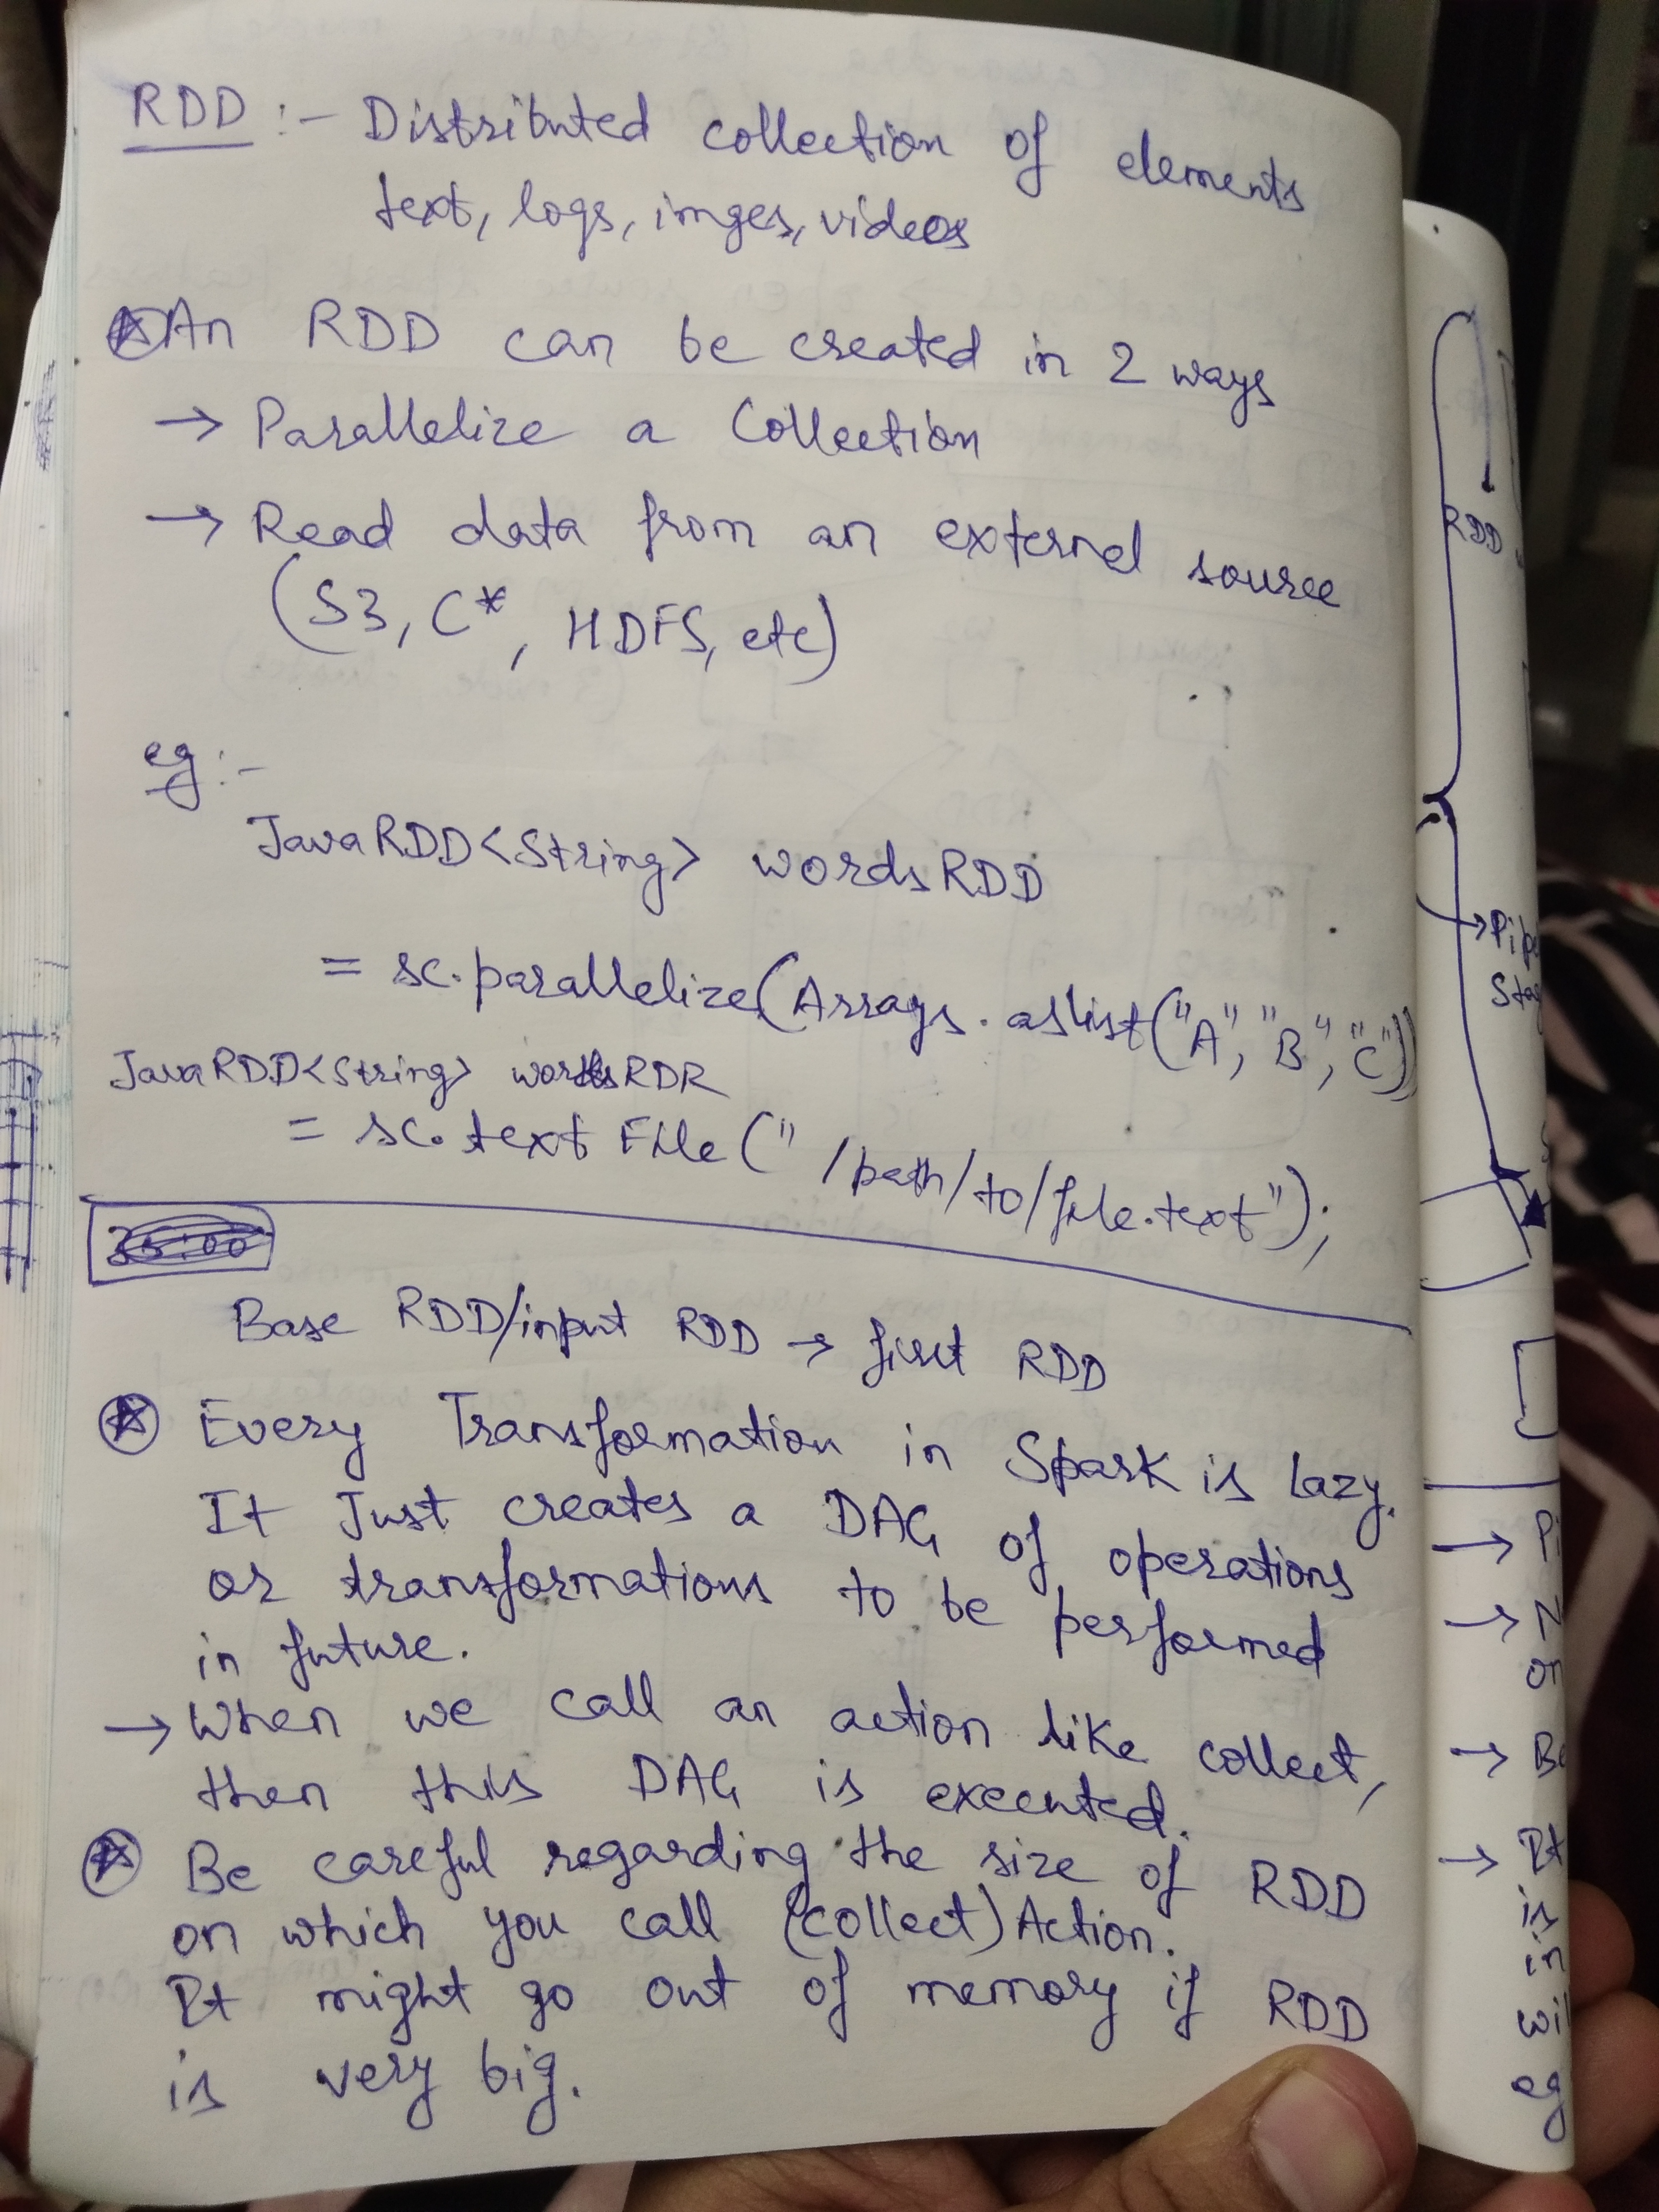 RDD :- Distributed collection of elements
text, logs, imges, videos
An RDD can be created in 2 ways
→ Parallelize a Collection
→ Read data from an external source
(S3, C*, HDFS, etc)
eg :-
JavaRDD<String> wordsRDD
= sc.parallelize(Arrays.aslist("A", "B", "C"))
JavaRDD<String> wordsRDR
= sc.textFile("/path/to/file.text");
Base RDD/input RDD → first RDD
Every Transformation in Spark is lazy.
It Just creates a DAG of operations
or transformations to be performed
in future.
→ When we call an action like collect,
then this DAG is executed.
Be careful regarding the size of RDD
on which you call (collect) Action.
It might go out of memory if RDD
is very big.
RDD
→ Pi
→ N
on
→ Be
→ It
is
in
wil
eg